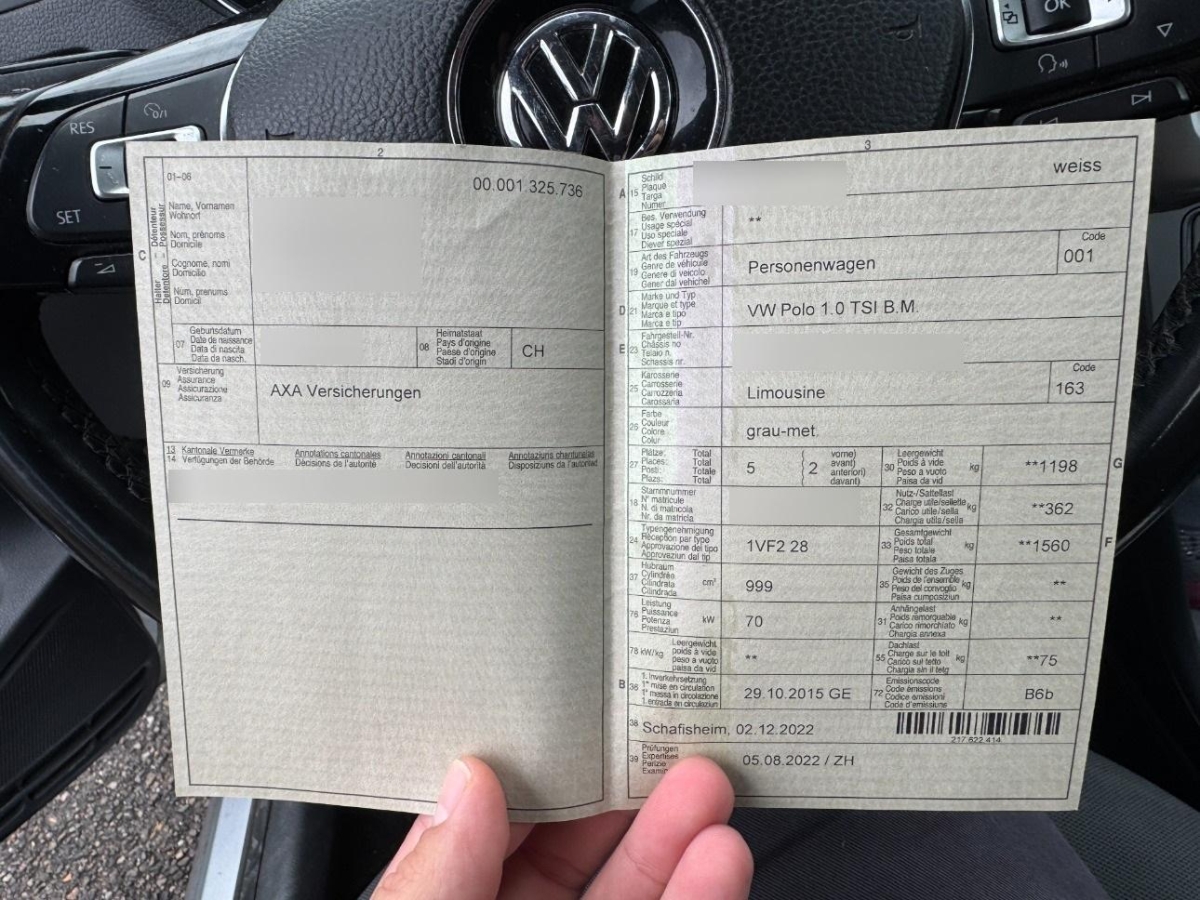 RES
SET
OK
2
01-06
00.001.325.736
C
Halter - Détenteur
Detentore - Possessur
Name, Vornamen
Wohnort
Nom, prénoms
Domicile
Cognome, nomi
Domicilio
Num, prenums
Domicil
07
Geburtsdatum
Date de naissance
Data di nascita
Data da nasch.
08
Heimatstaat
Pays d'origine
Paese d'origine
Stadi d'origin
CH
09
Versicherung
Assurance
Assicurazione
Assicuranza
AXA Versicherungen
13 Kantonale Vermerke Annotations cantonales Annotazioni cantonali Annotaziuns chantunalas
14 Verfügungen der Behörde Décisions de l'autorité Decisioni dell'autorità Disposiziuns da l'autoritad
3
A 15
Schild
Plaque
Targa
Numer
weiss
17
Bes. Verwendung
Usage spécial
Uso speciale
Diever spezial
**
19
Art des Fahrzeugs
Genre de véhicule
Genere di veicolo
Gener dal vehichel
Personenwagen
Code
001
D 21
Marke und Typ
Marque et type
Marca e tipo
Marca e tip
VW Polo 1.0 TSI B.M.
E 23
Fahrgestell-Nr.
Châssis no
Telaio n.
Schassis nr.
25
Karosserie
Carrosserie
Carrozzeria
Carossaria
Limousine
Code
163
26
Farbe
Couleur
Colore
Colur
grau-met.
27
Plätze: Total
Places: Total
Posti: Totale
Plazs: Total
5
2
vorne)
avant)
anteriori)
davant)
30
Leergewicht
Poids à vide
Peso a vuoto
Paisa da vid
kg
**1198
G
18
Stammnummer
N° matricule
N. di matricola
Nr. da matricla
32
Nutz-/Sattellast
Charge utile/sellette
Carico utile/sella
Chargia utila/sella
kg
**362
24
Typengenehmigung
Réception par type
Approvazione del tipo
Approvaziun dal tip
1VF2 28
33
Gesamtgewicht
Poids total
Peso totale
Paisa totala
kg
**1560
F
37
Hubraum
Cylindrée
Cilindrata
Cilindrada
cm³
999
35
Gewicht des Zuges
Poids de l'ensemble
Peso del convoglio
Paisa cumposiziun
kg
**
76
Leistung
Puissance
Potenza
Prestaziun
kW
70
31
Anhängelast
Poids remorquable
Carico rimorchiato
Chargia annexa
kg
**
78 kW/kg
Leergewicht
poids à vide
peso a vuoto
paisa da vid
**
55
Dachlast
Charge sur le toit
Carico sul tetto
Chargia sin il tetg
kg
**75
B 36
1. Inverkehrsetzung
1re mise en circulation
1a messa in circolazione
1. entrada en circulaziun
29.10.2015 GE
72
Emissionscode
Code émissions
Codice emissioni
Code d'emissiuns
B6b
38
Schafisheim, 02.12.2022
217 622 414
39
Prüfungen
Expertises
Perizie
05.08.2022 / ZH